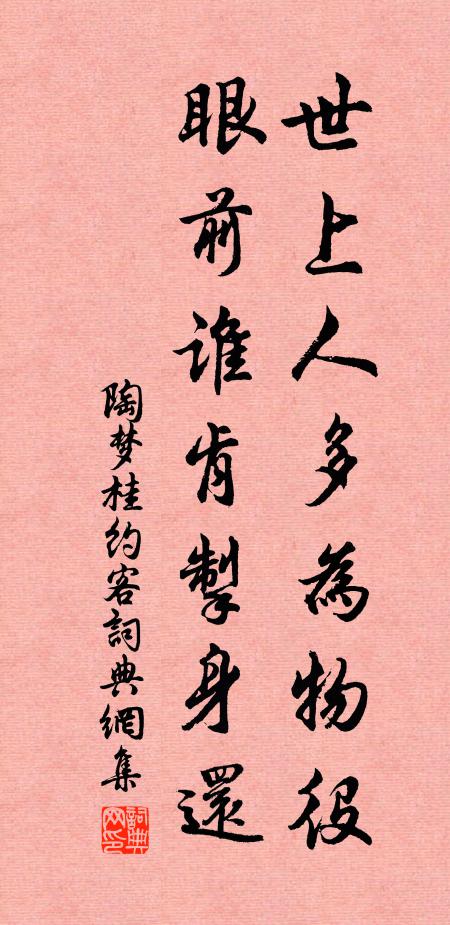 世上人多為物役
眼前誰肯掣身還
陶梦桂约客詞典網集
詞典网印